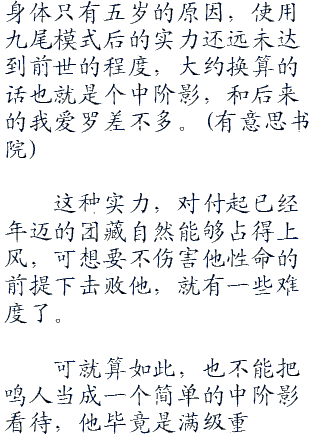 身体只有五岁的原因，使用
九尾模式后的实力还远未达
到前世的程度，大约换算的
话也就是个中阶影，和后来
的我爱罗差不多。(有意思书
院)
这种实力，对付起已经
年迈的团藏自然能够占得上
风，可想要不伤害他性命的
前提下击败他，就有一些难
度了。
可就算如此，也不能把
鸣人当成一个简单的中阶影
看待，他毕竟是满级重